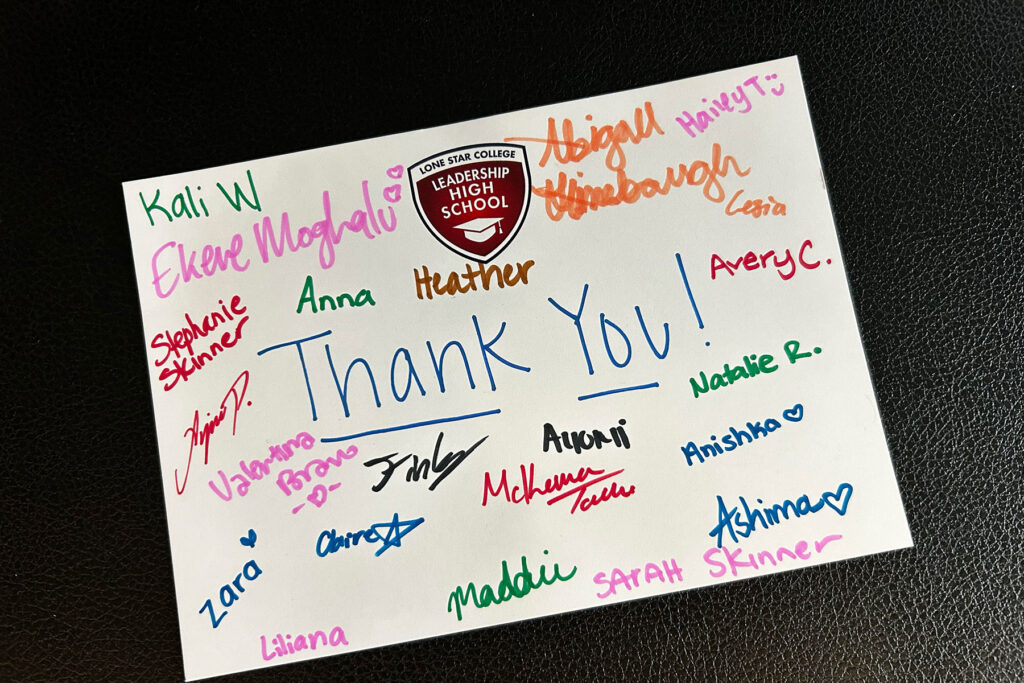 Hailey T
Abigail
Kali W
LONE STAR COLLEGE
LEADERSHIP
HIGH
SCHOOL
Ekene Moghalu
Lesia
Heather
Avery C.
Anna
Stephanie
Skinner
Thank You!
Natalie R.
Valentina
Bravo
Anishka
McKenna
Claire
Ashima
Zara
Maddii
SARAH SKINNER
Liliana